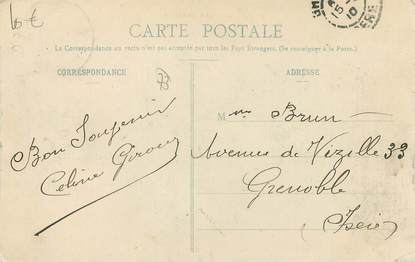 10 €
CARTE POSTALE
La Correspondance au recto n'est pas acceptée par tous les Pays Étrangers. (Se renseigner à la Poste.)
CORRESPONDANCE
ADRESSE
Bon Souvenir
Celine
Mme Brun
Avenue de Vizille 33
Grenoble
(Isère)